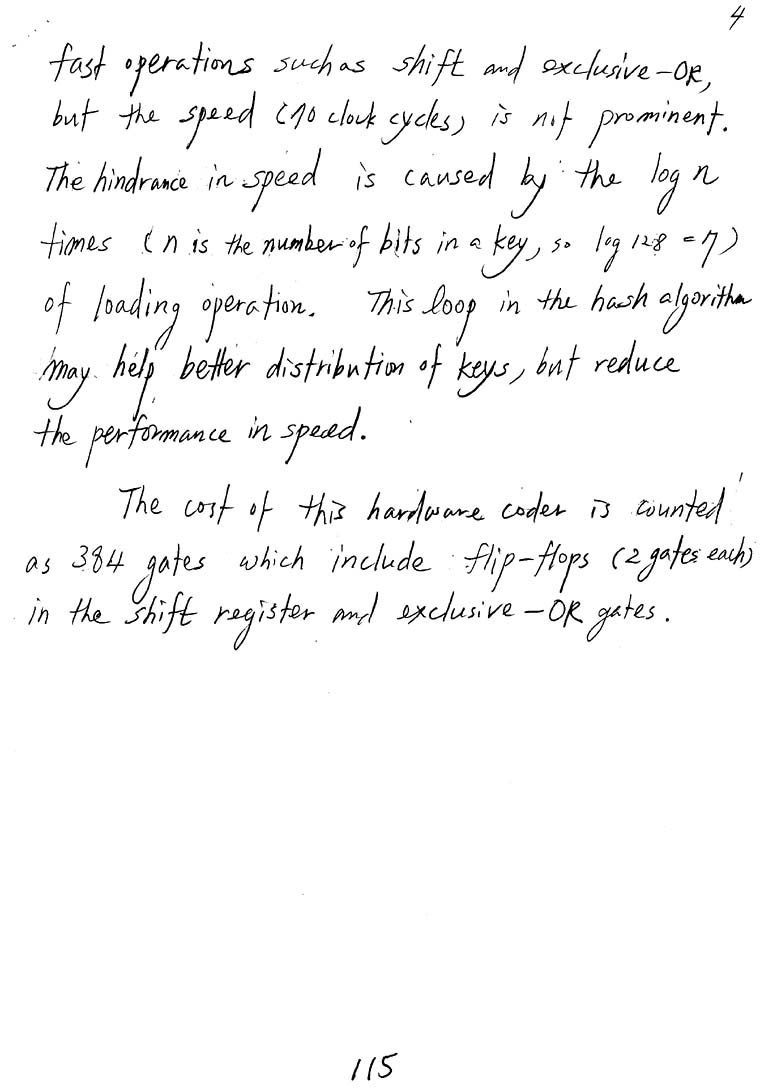 4
fast operations such as shift and exclusive-OR,
but the speed (10 clock cycles) is not prominent.
The hindrance in speed is caused by the log n
times (n is the number of bits in a key, so log 128 = 7)
of loading operation. This loop in the hash algorithm
may help better distribution of keys, but reduce
the performance in speed.
The cost of this hardware coder is counted
as 384 gates which include flip-flops (2 gates each)
in the shift register and exclusive-OR gates.
115